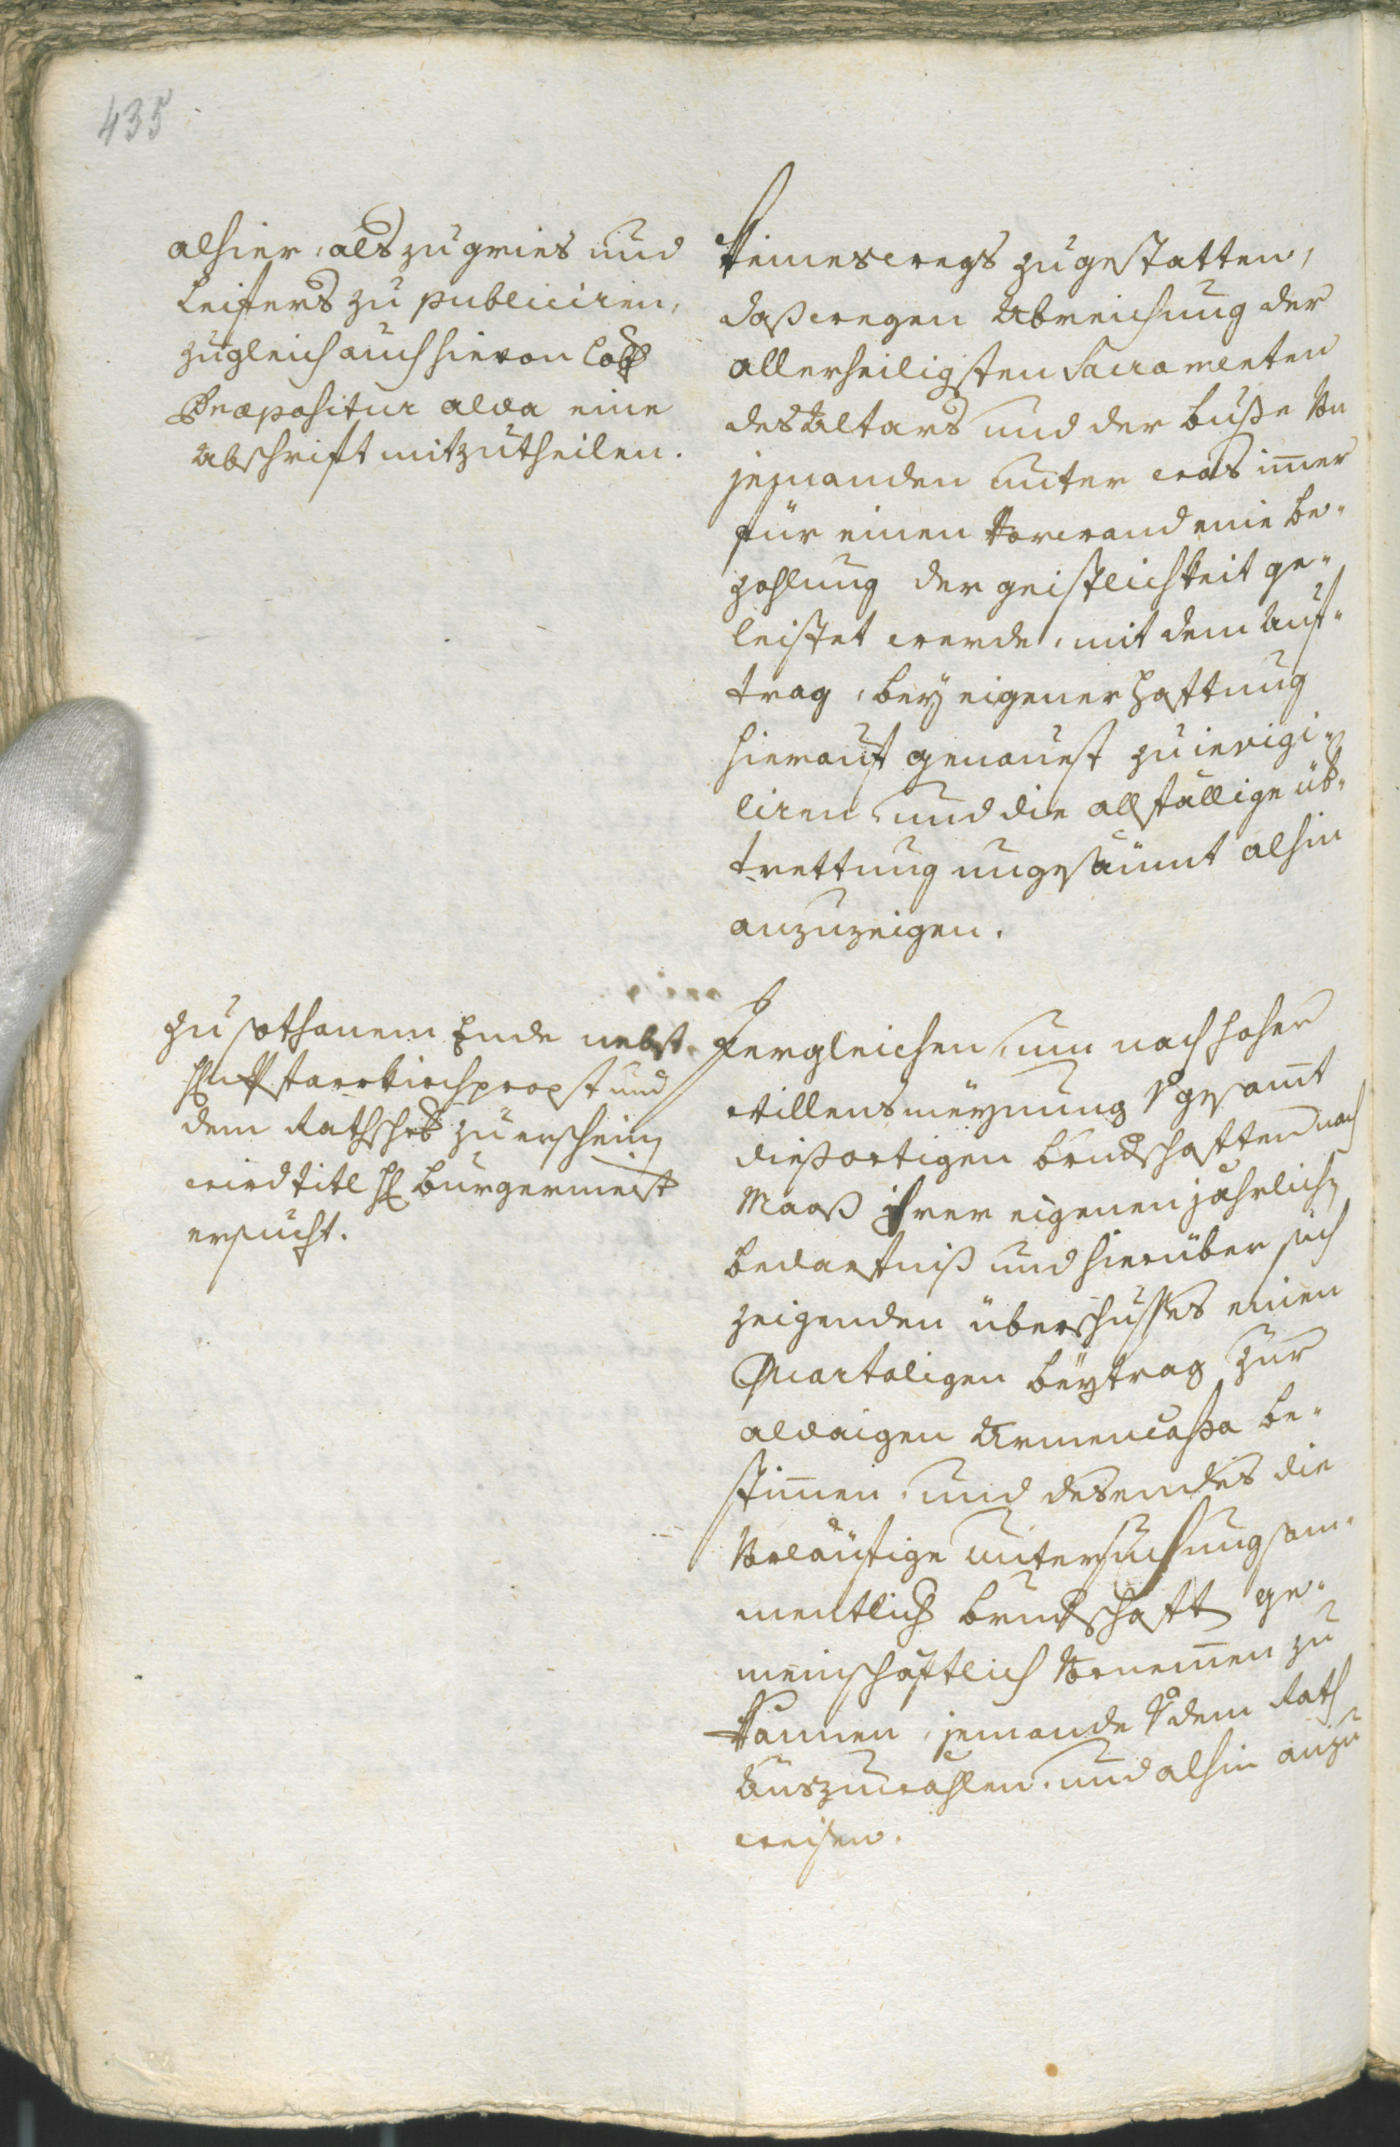 435
alhier, als zu gries und
Leifers zu publiciren,
zugleich auch hievon Löbl
Præpositur alda eine
Abschrift mitzutheilen.
keineswegs zugestatten,
daß wegen Abreichung der
allerheiligsten Sacramenten
des Altars und der busse von
jemanden unter was im̄er
für einen Vorwand eine be-
zahlung der geistlichkeit ge-
leistet werde, mit dem Auf-
trag, bey eigener Haftung
hierauf genauest zu invigi-
liren, und die allfällige üb-
trettung ungesäumt alhin
anzuzeigen.
zu sothanem Ende nebst
H Pfarrkirchpropst und
dem Rathschrb zu erschein
wird titl H Burgermeist
ersucht.
Fergleichen, um nach hoher
willensmeynung gesam̄t
diesortigen brudschaften nach
Maas ihrer eigenen jährlich
bedarfniß und hierüber sich
zeigenden überschusses einen
Quartaligen beytrag zur
aldaigen Armencassa be-
stim̄en, und des endes die
Vorläufige untersuchung sam-
mentlich brudschaft ge-
meinschäftlich vornem̄en zu
können, jemande dem Rath
auszuwählen, und alhin anzu
weisen.